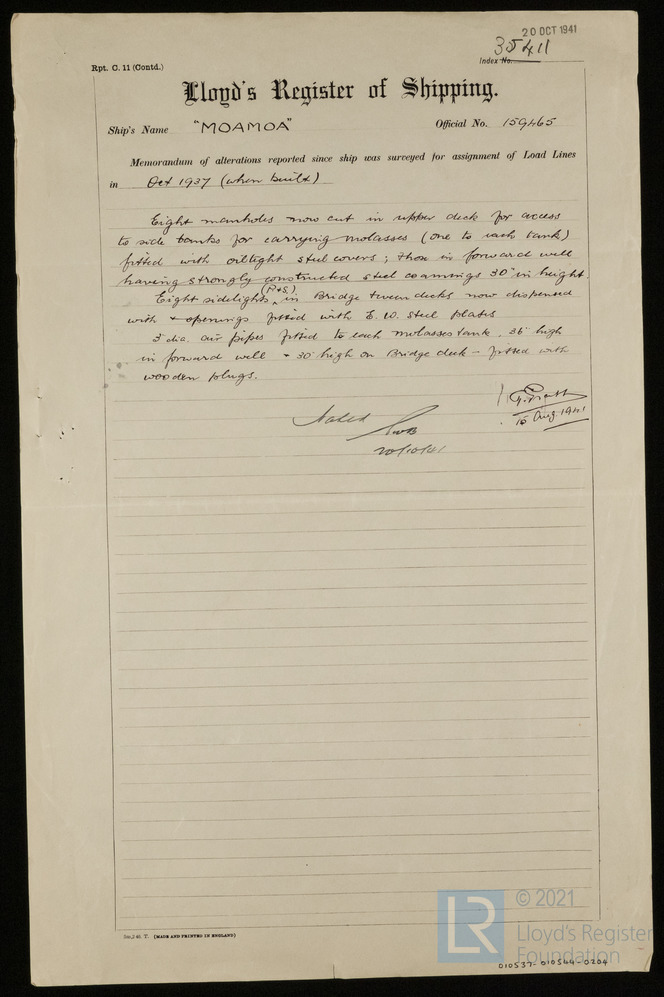 20 OCT 1941
35411
Rpt. C. 11 (Contd.)
Index No.
Lloyd's Register of Shipping.
Ship's Name "MOAMOA" Official No. 159465
Memorandum of alterations reported since ship was surveyed for assignment of Load Lines
in Oct 1937 (when built)
Eight manholes now cut in upper deck for access
to side tanks for carrying molasses (one to each tank)
fitted with oiltight steel covers; those in forward well
having strongly constructed steel coamings 30" in height
Eight sidelights (P&S.) in Bridge tween decks now dispensed
with & openings fitted with E. W. steel plates
dia. air pipes fitted to each molasses tank. 36" high
in forward well & 30" high on Bridge deck - fitted with
wooden plugs.
Noted
15 Aug 1941
20/10/41
(MADE AND PRINTED IN ENGLAND)
LR
© 2021
Lloyd's Register
Foundation
010537-010544-0204